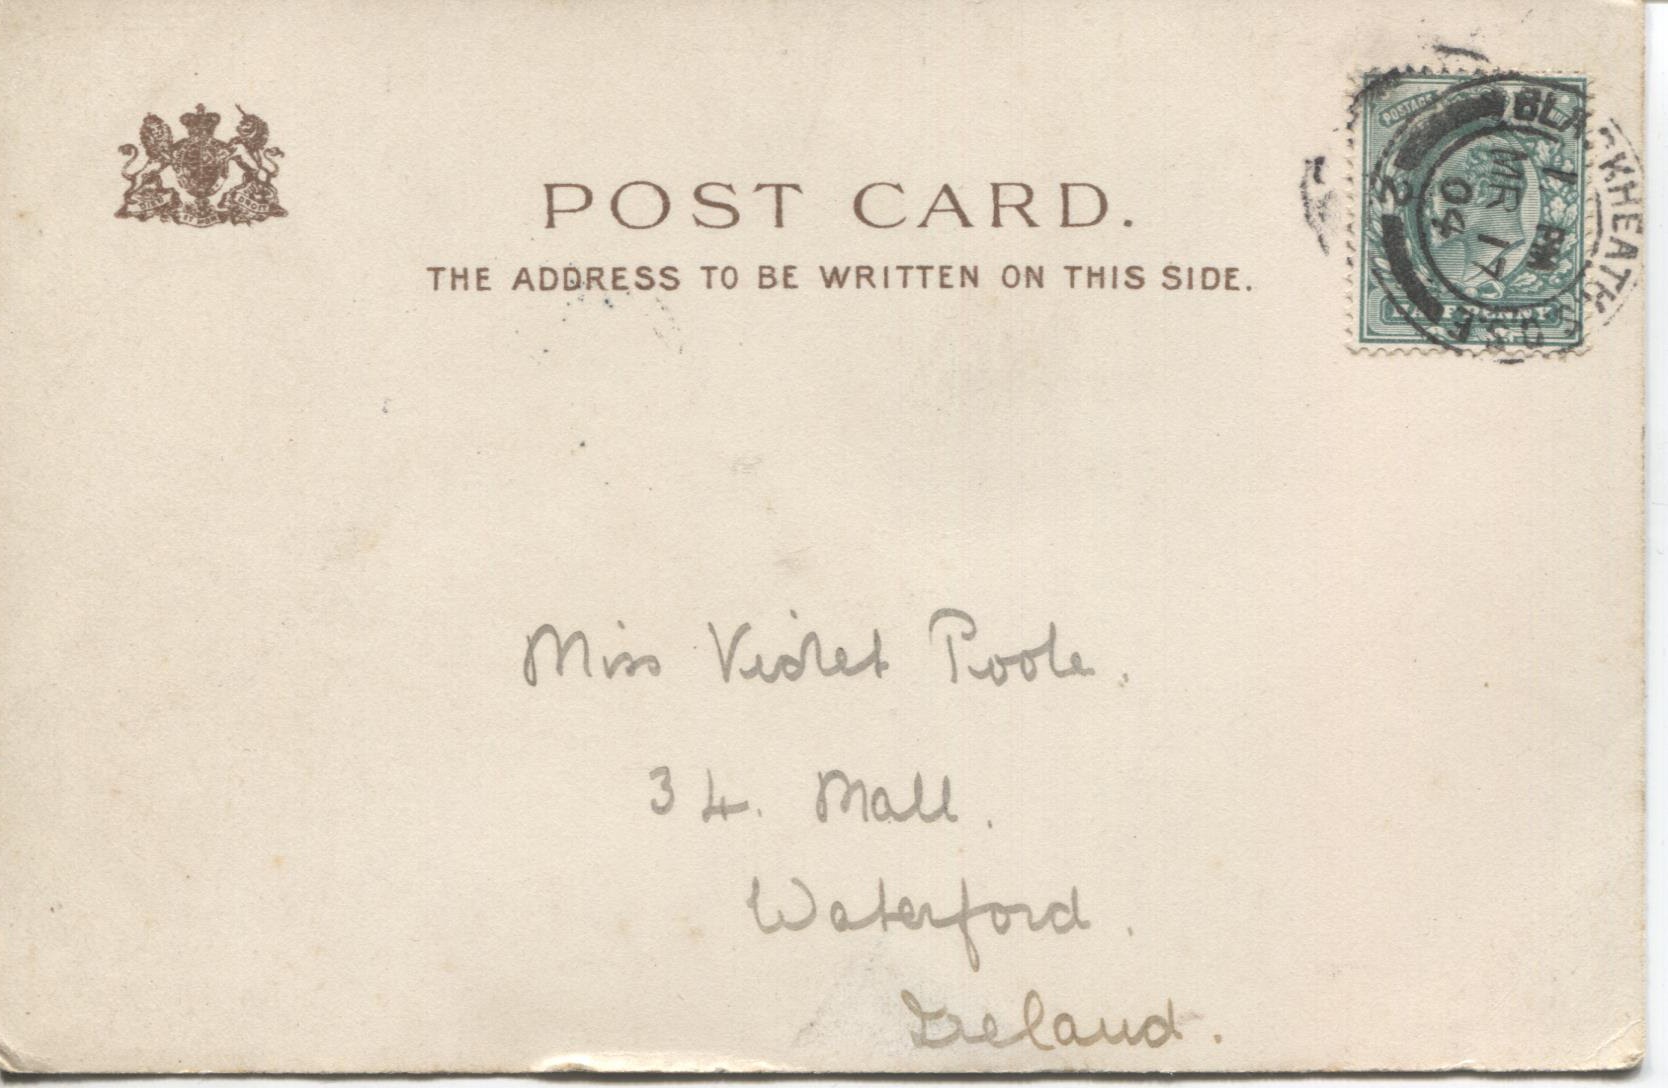 POST CARD.
THE ADDRESS TO BE WRITTEN ON THIS SIDE.
POSTAGE
BLACKHEATH
S.E
1 PM
MR 17
04
2
Miss Violet Poole.
34. Mall.
Waterford.
Ireland.